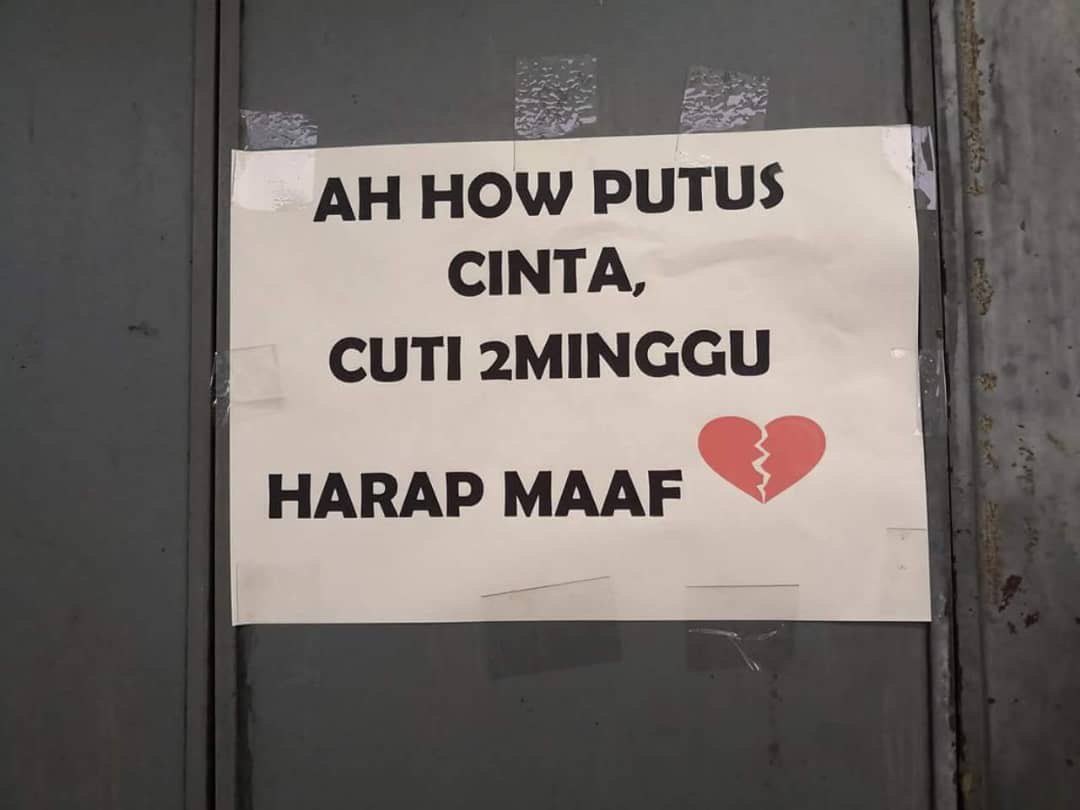 AH HOW PUTUS
CINTA,
CUTI 2MINGGU
HARAP MAAF